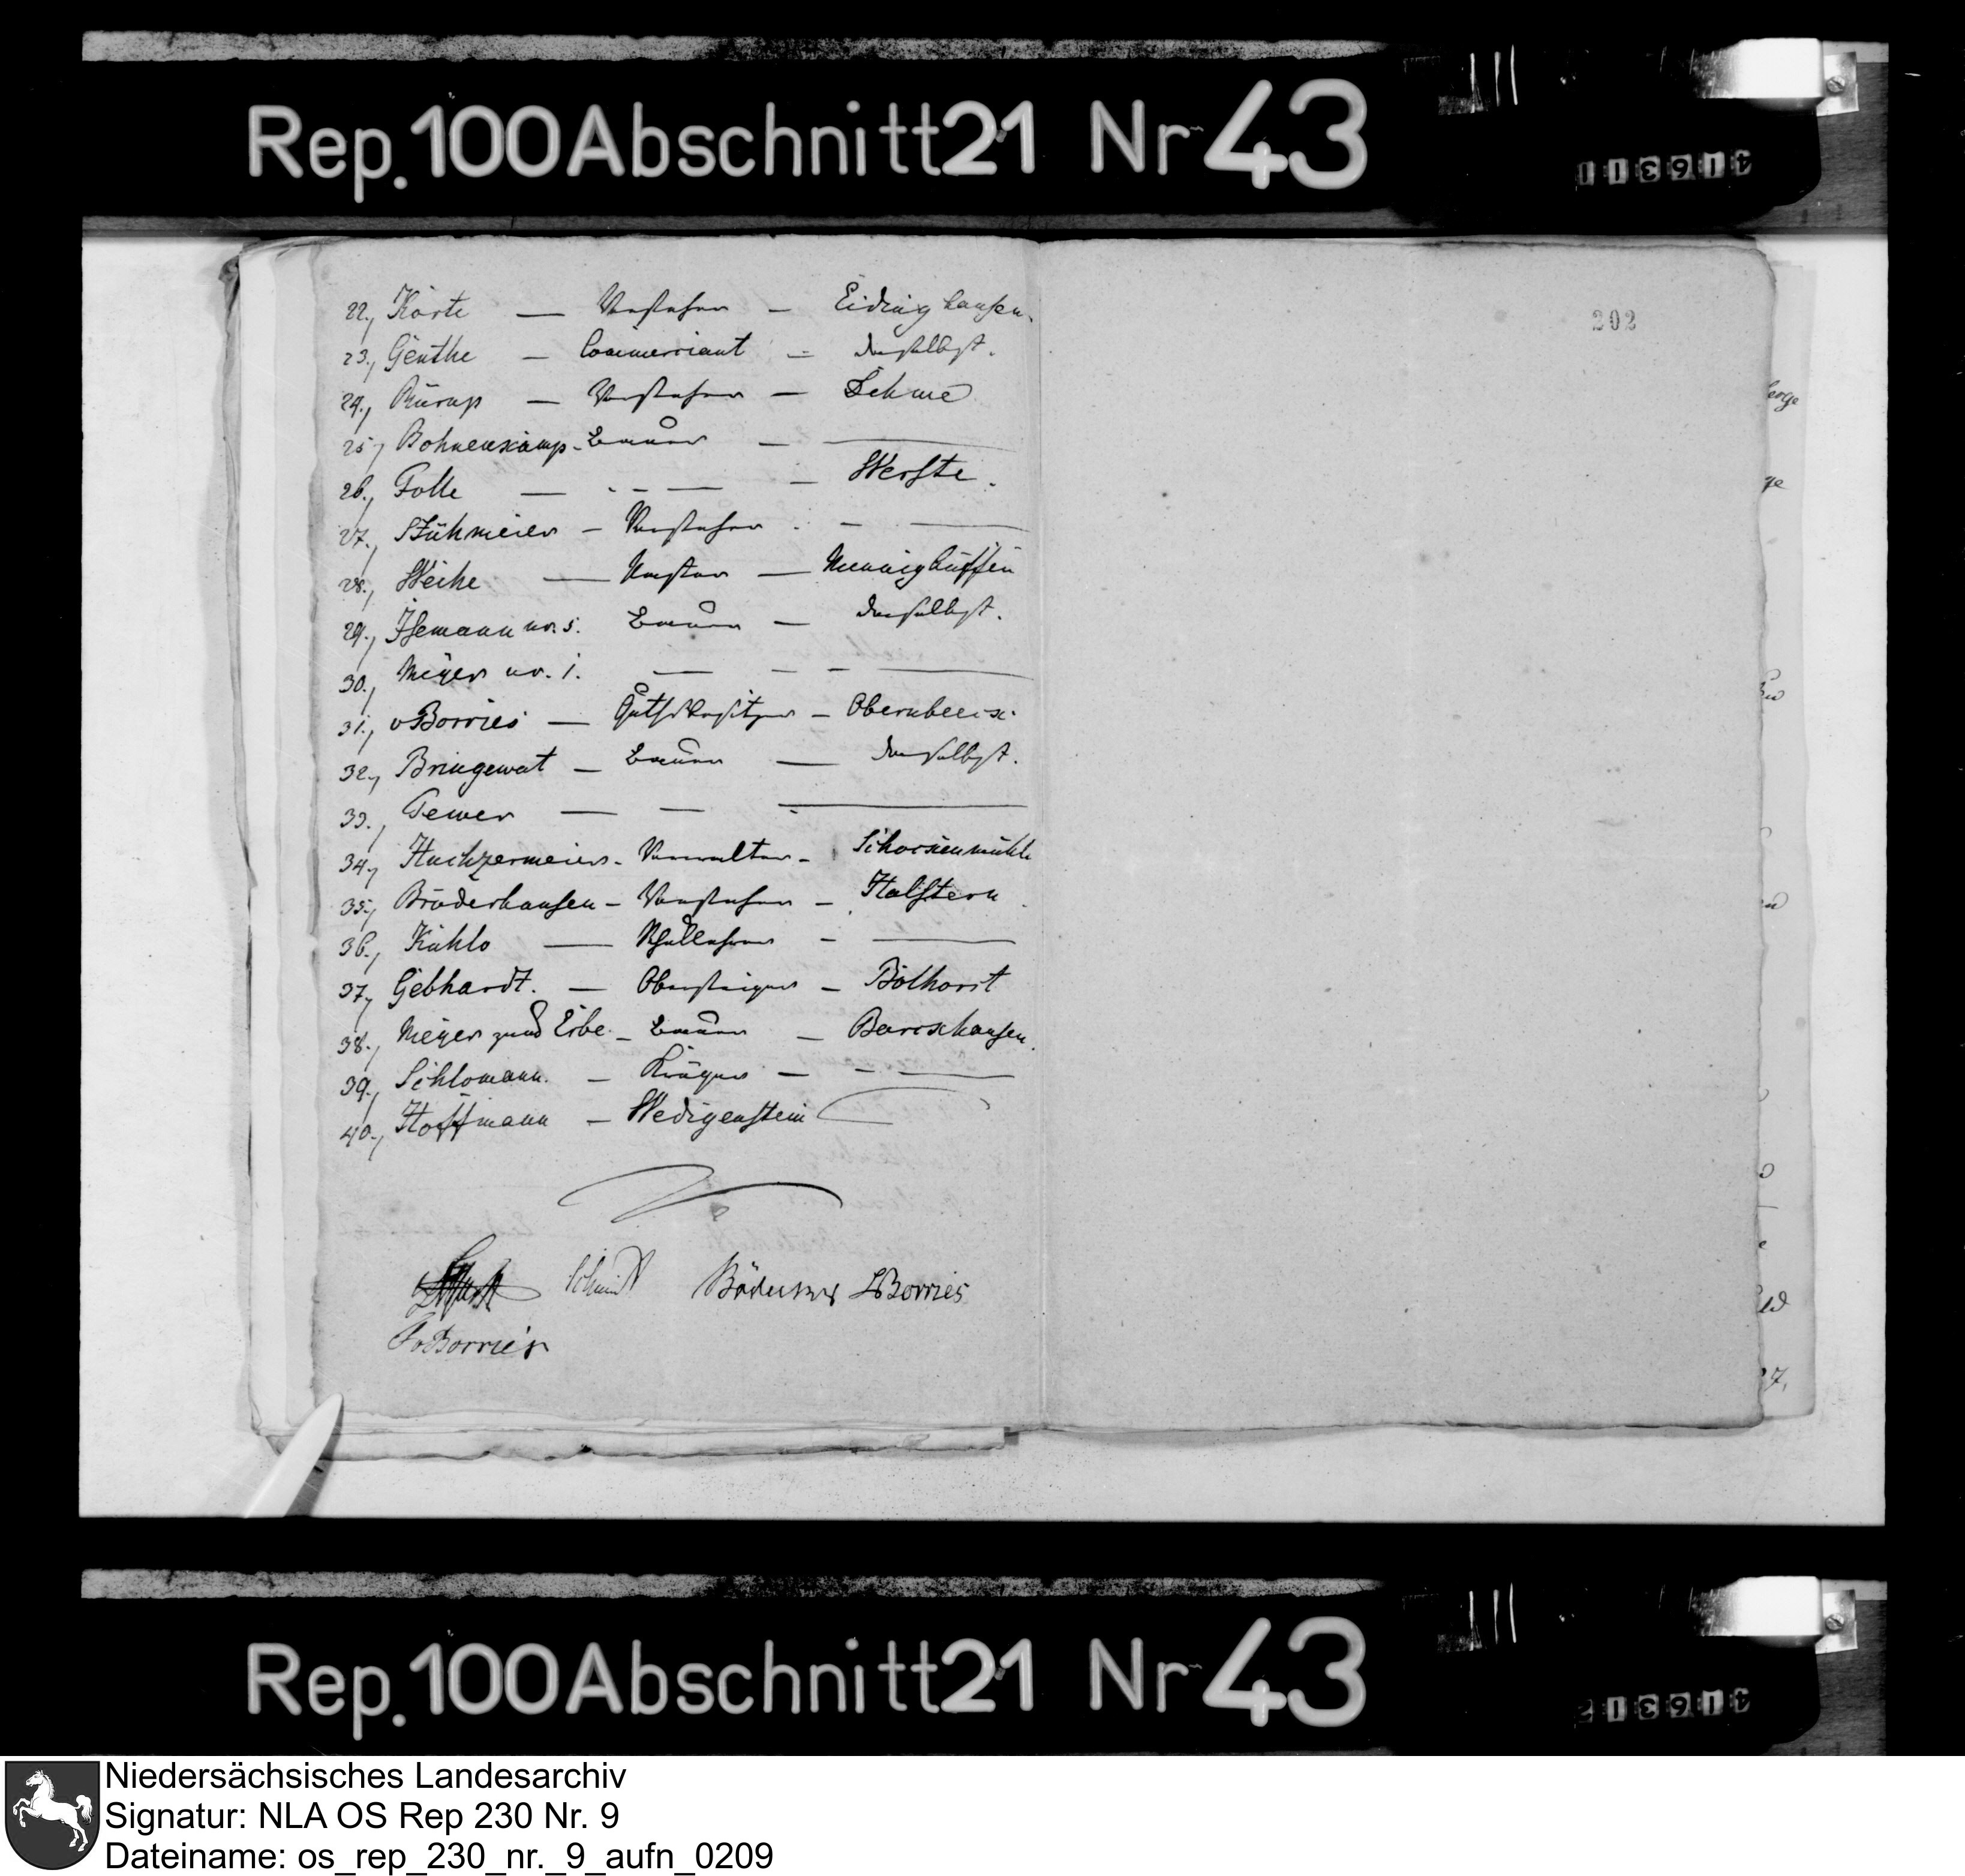 Rep. 100 Abschnitt 21 Nr 43
202
22., Körte — Vorsteher — Eidinghausen.
23., Genthe — Commerciant — daselbst.
24., Rürup — Vorsteher — Rehme
25., Bohnenkamp - Bauer — —
26., Folle — - - — — Werste.
27., Stühmeier — Vorsteher - — —
28., Weihe — Pastor — Mennighüffen
29., Isemann no. 5. Bauer — daselbst.
30., Meyer no. 1. — — — —
31., v Borries — Gutsbesitzer — Obernbeck.
32., Bringewat — Bauer — daselbst.
33., Tewer — — —
34., Huchzermeier - Verwalter - Schockenmühle
35., Bröderhausen - Vorsteher — Halstern
36., Kuhlo — Schullehrer — —
37., Gebhardt. — Obersteiger — Bölhorst
38., Meyer zum Erbe — Bauer — Barckhausen.
39., Schlomann. — Krüger — - —
40., Hoffmann — Wedigenstein
Schmidt Bödecker v Borries
v Borries
Rep. 100 Abschnitt 21 Nr 43
Niedersächsisches Landesarchiv
Signatur: NLA OS Rep 230 Nr. 9
Dateiname: os_rep_230_nr._9_aufn_0209